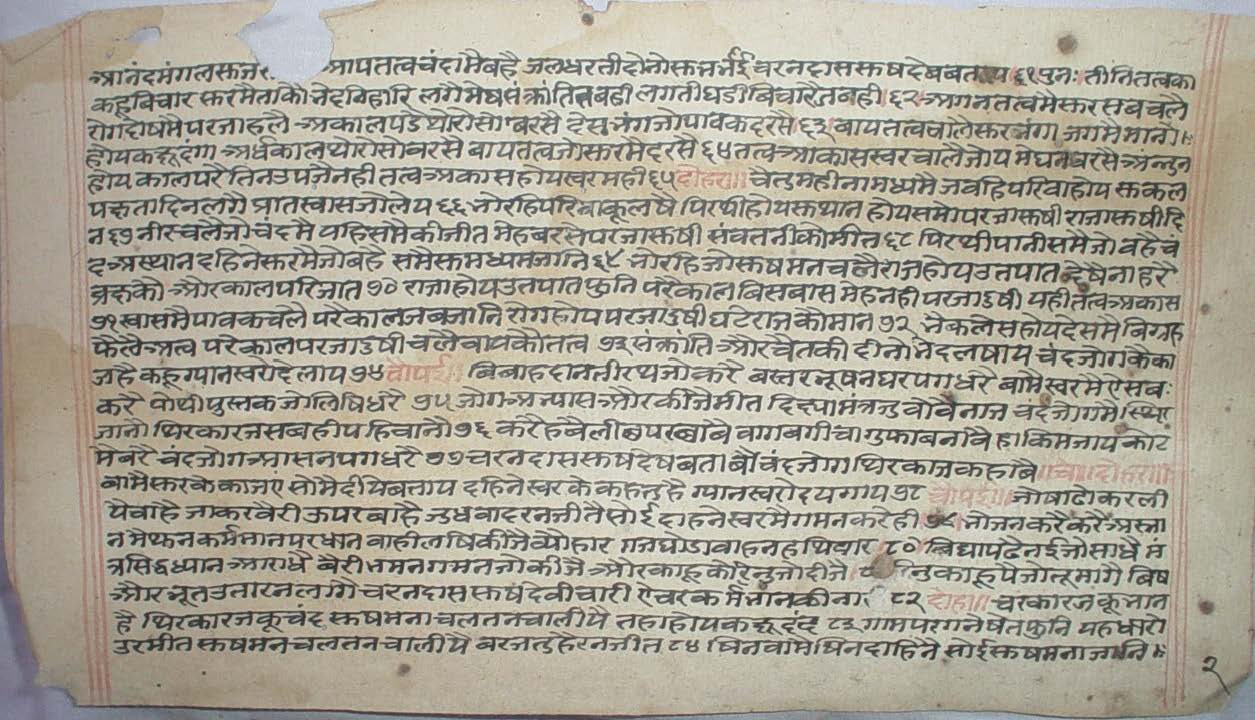 आनंदमंगलसकज आपतत्वचंदामैबहै जलधरतीदोनोसकभर्भई चरनदाससकषदेबबताय ६१ पुनः तीनितत्वका
कहूबिचार सकरमैताकोभेदबिहारि लगेमेषसंक्रांतितबही लगतीघडीबिचारेजबही ६२ अगनतत्वमैसकरसबचले
रोगदोषमैपरजाहलै अकालपडैथोरोसोबरसै देसभंगजोपावकदरसै ६३ बायतत्वचालैसकरभंगा जगमैमानो
होयकछूदंगा अर्धकालथोरासोबरसै बायतत्वजोसकरमेदरसै ६४ तत्वआकासस्वरचालैजोय मेघनबरसैअन्नुन
होय कालपरैतिनउपजैनही तत्वअकासहोयस्वरमही ६५ दोहरा॥ चैतुमहीनामध्यमै जबहिपरिवाहोय सकल
पछतादिनलगै प्रातस्वासजोलेय ६६ भोरहिपरिवाकूलषै पिरथीहोयसकथान होयसमोपरजासकषी राजासकषीदि
न ६७ नीरचलैजोचंदमै यहिसमैकीजीत मेहबरसेपरजासकषी संवतनीकोमीत ६८ पिरथीपानीसमैजो बहैचं
दअस्थान दहिनेसकरमैजोबहै समैसकमध्यमजान ६९ भोरहिजोसकषमनचलै राजहोयउतपात देषैनाहरै
अरुकौ औरकालपरिजात ७० राजाहोयउतपातफुति परैकालबिसबास मेहनहीपरजादुषी यहीतत्वअकास
७१ स्वासमैपावकचलै परैकालजबजानि रोगहोयपरजादुषी घटैराजकौमान ७२ भैकलेसहोयदेसमै बिग्रह
फैलैअत्व परैकालपरजादुषी चलैबायकौतत्व ७३ संक्रांतिऔरचैतकी दीनोभेदलषाय चंदजोगकैका
जहै कहूग्यानस्वरोदेलाय ७४ चौपई॥ बिबाहदानतीरथजोकरै बस्तरभूषनघरपगधरै बामैस्वरमेएसब
करै पोथीपुस्तकजोलिषिधरै ७५ जोगअभ्यासऔरकीजैमीत दिछ्यामंत्रजुबोवैनाज चंदजोगमेस्थिर
जानो थिरकारजसबहीपहिचानो ७६ करैहबैलीछपरछावै बागबगीचागुफाबनावै हाकिमजायकोट
मेंबरै चंदजोगआसनपगधरै ७७ चरनदाससकषदेवबतावै चंदजोगथिरकाजकहावै दोहरा॥
बामैसकरकेकाजए सोमैदीयेबताय दहिनेस्वरकेकहतुहै ग्यानस्वरोदयगाय ७८ चौपई॥ जोषाडोकरली
येवाहै जाकरबैरीऊपरबाहै जुधवादरनजीतैसोई दाहनेस्वरमैगमनकरेही ७९ भोजनकरैकरैअस्ना
न मैथुनकर्मभानपरधान वाहीलषिकीजैब्योहार गजघोडावाहनहथियार ८० बिद्यापढैनईजोसाधै मं
त्रसिद्धध्यानआराधै बैरीभमनगमनजोकीजै औरकाहूकोरिनुजोदीजै काहूपैजोतूमागै बिष
औरभूतउतारनलागै चरनदाससकषदेवीचारी ऐचरकर्मभानकीनारी ८२ दोहा॥ चरकारजकूभान
है थिरकारजकूचंद सकषमनाचलतनचालीयै तहाहोयकछूदंद ८३ गामपरगनेषेतफुनि यहधारो
उरमीत सकषमनचलतनचालीयै बरजतुहैरनजीत ८४ षिनबामैषिनदाहिनै सोईसकषमनाजानि
२